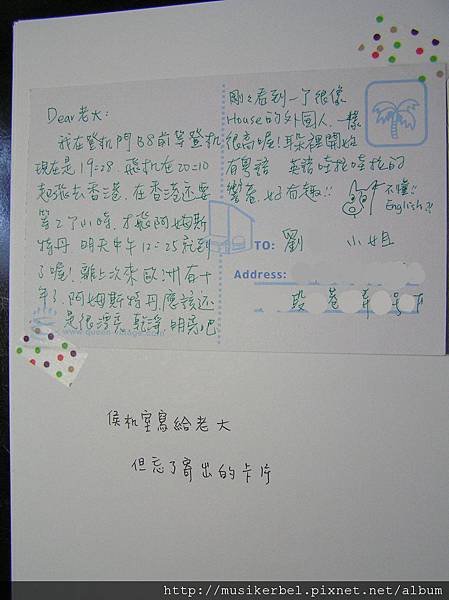 Dear老大：
我在登机門68前等登机
現在是19:28. 飛机在20:10
起飛去香港. 在香港还要
等2个小時, 才飛阿姆斯
特丹. 明天中午12:25就到
了喔! 離上次來歐洲有十
年了. 阿姆斯特丹應該还
是很漂亮, 乾淨, 明亮吧
剛々看到一个很像
House的外國人, 一樣
很高喔! 耳朵裡開始
有粵語 英語哇拉哇拉的
聲音, 好有趣!!
不懂!!
English?!
TO: 劉 小姐
Address:
段 巷 弄 号
侯机室寫給老大
但忘了寄出的卡片
http://musikerbel.pixnet.net/album